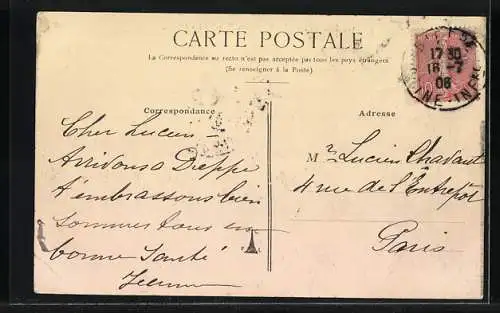 CARTE POSTALE
La Correspondance au recto n'est pas acceptée par tous les pays étrangers
(Se renseigner à la Poste)
Correspondance
Cher Lucien
Arrivons a Dieppe
t'embrassons bien
sommes tous en
bonne Santé
Adresse
17 30
18-7
06
INE-INF
Mr Lucien
4 rue de l'Entrepôt
Paris